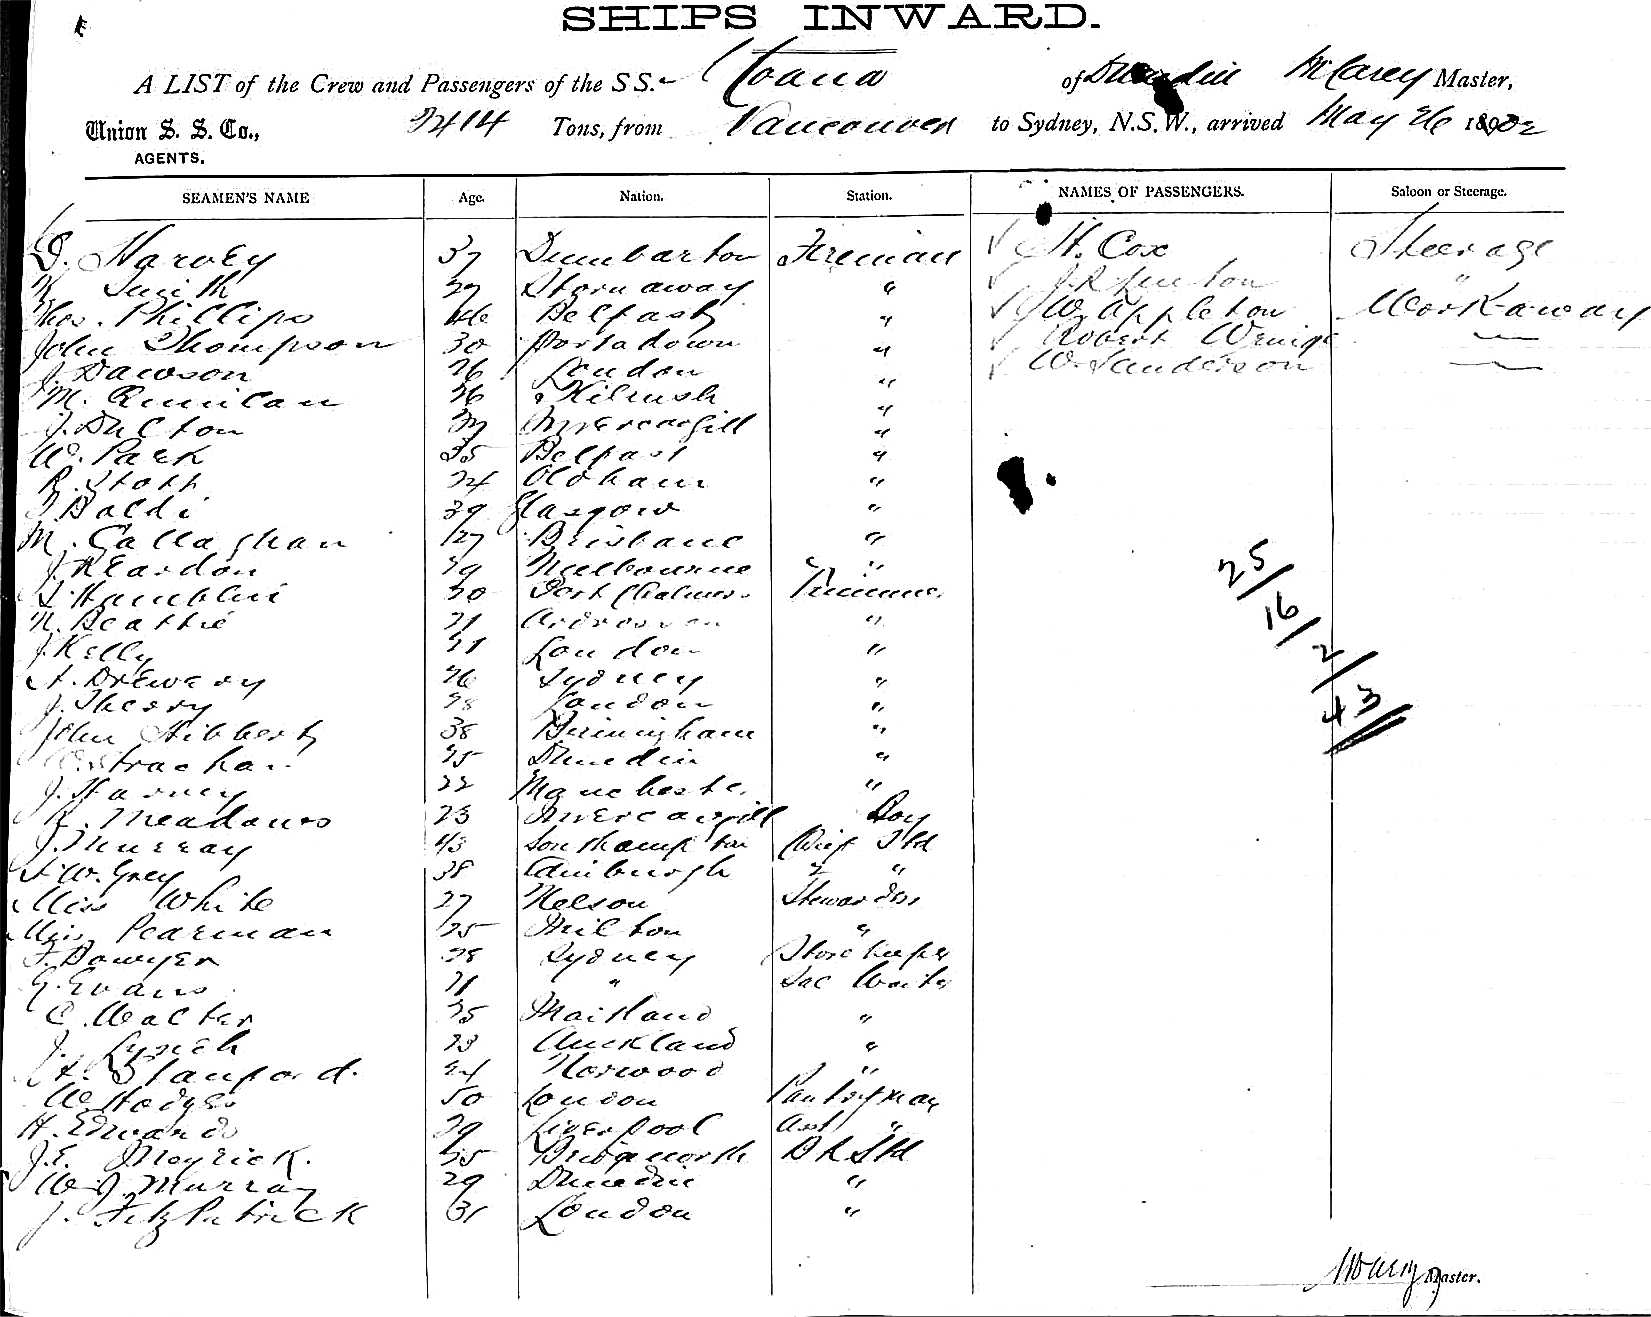 SHIPS INWARD.
A LIST of the Crew and Passengers of the SS. Moana of Dunedin M Carey Master,
Union S. S. Co., 2414 Tons, from Vancouver to Sydney, N.S.W., arrived May 26 1902
AGENTS.
SEAMEN'S NAME Age. Nation. Station. NAMES OF PASSENGERS. Saloon or Steerage.
D. Harvey 37 Dumbarton Fireman H. Cox Steerage
Smith 29 Stornaway " "
Thos. Phillips 46 Belfast " W. Appleton Workaway
John Thompson 30 Portadown " Robert —
J. Dawson 26 London " W. Sanderson —
M. Quinlan 26 Kilrush "
J. Dulton Invercargill "
W. Park 35 Belfast "
R. Stott 24 Oldham "
Baldi 39 Glasgow "
M. Callaghan 27 Brisbane "
J. Reardon 29 Melbourne "
Hamblin 30 Port Chalmers Trimmer
N. Beattie 21 Ardrossan "
J. Kelly 21 London "
A. Drewery 26 Sydney "
J. Theory 28 London "
John Hibbert 38 Birmingham "
W. Strachan 25 Dunedin "
J. Harvey 22 Manchester "
K. Meadows 23 Invercargill Boy
J. Murray 43 Southampton Chief Std
F. W. Grey 38 Edinburgh 2 "
Miss White 27 Nelson Stewardess
Miss Pearman 25 Milton "
F. Bowyer 28 Sydney Storekeeper
G. Evans 21 " Sac Waiter
C. Walter 25 Maitland "
J. Lynch 23 Auckland "
A. Stanford. 24 Norwood "
W. Hodges 50 London Pantryman
H. Edwards 29 Liverpool Asst "
J. E. Meyrick. 35 Bridgnorth B R Std
W. J. Murray 29 Dunedin "
J. Fitzpatrick 31 London "
25/
16/
2/
43
M Carey Master.